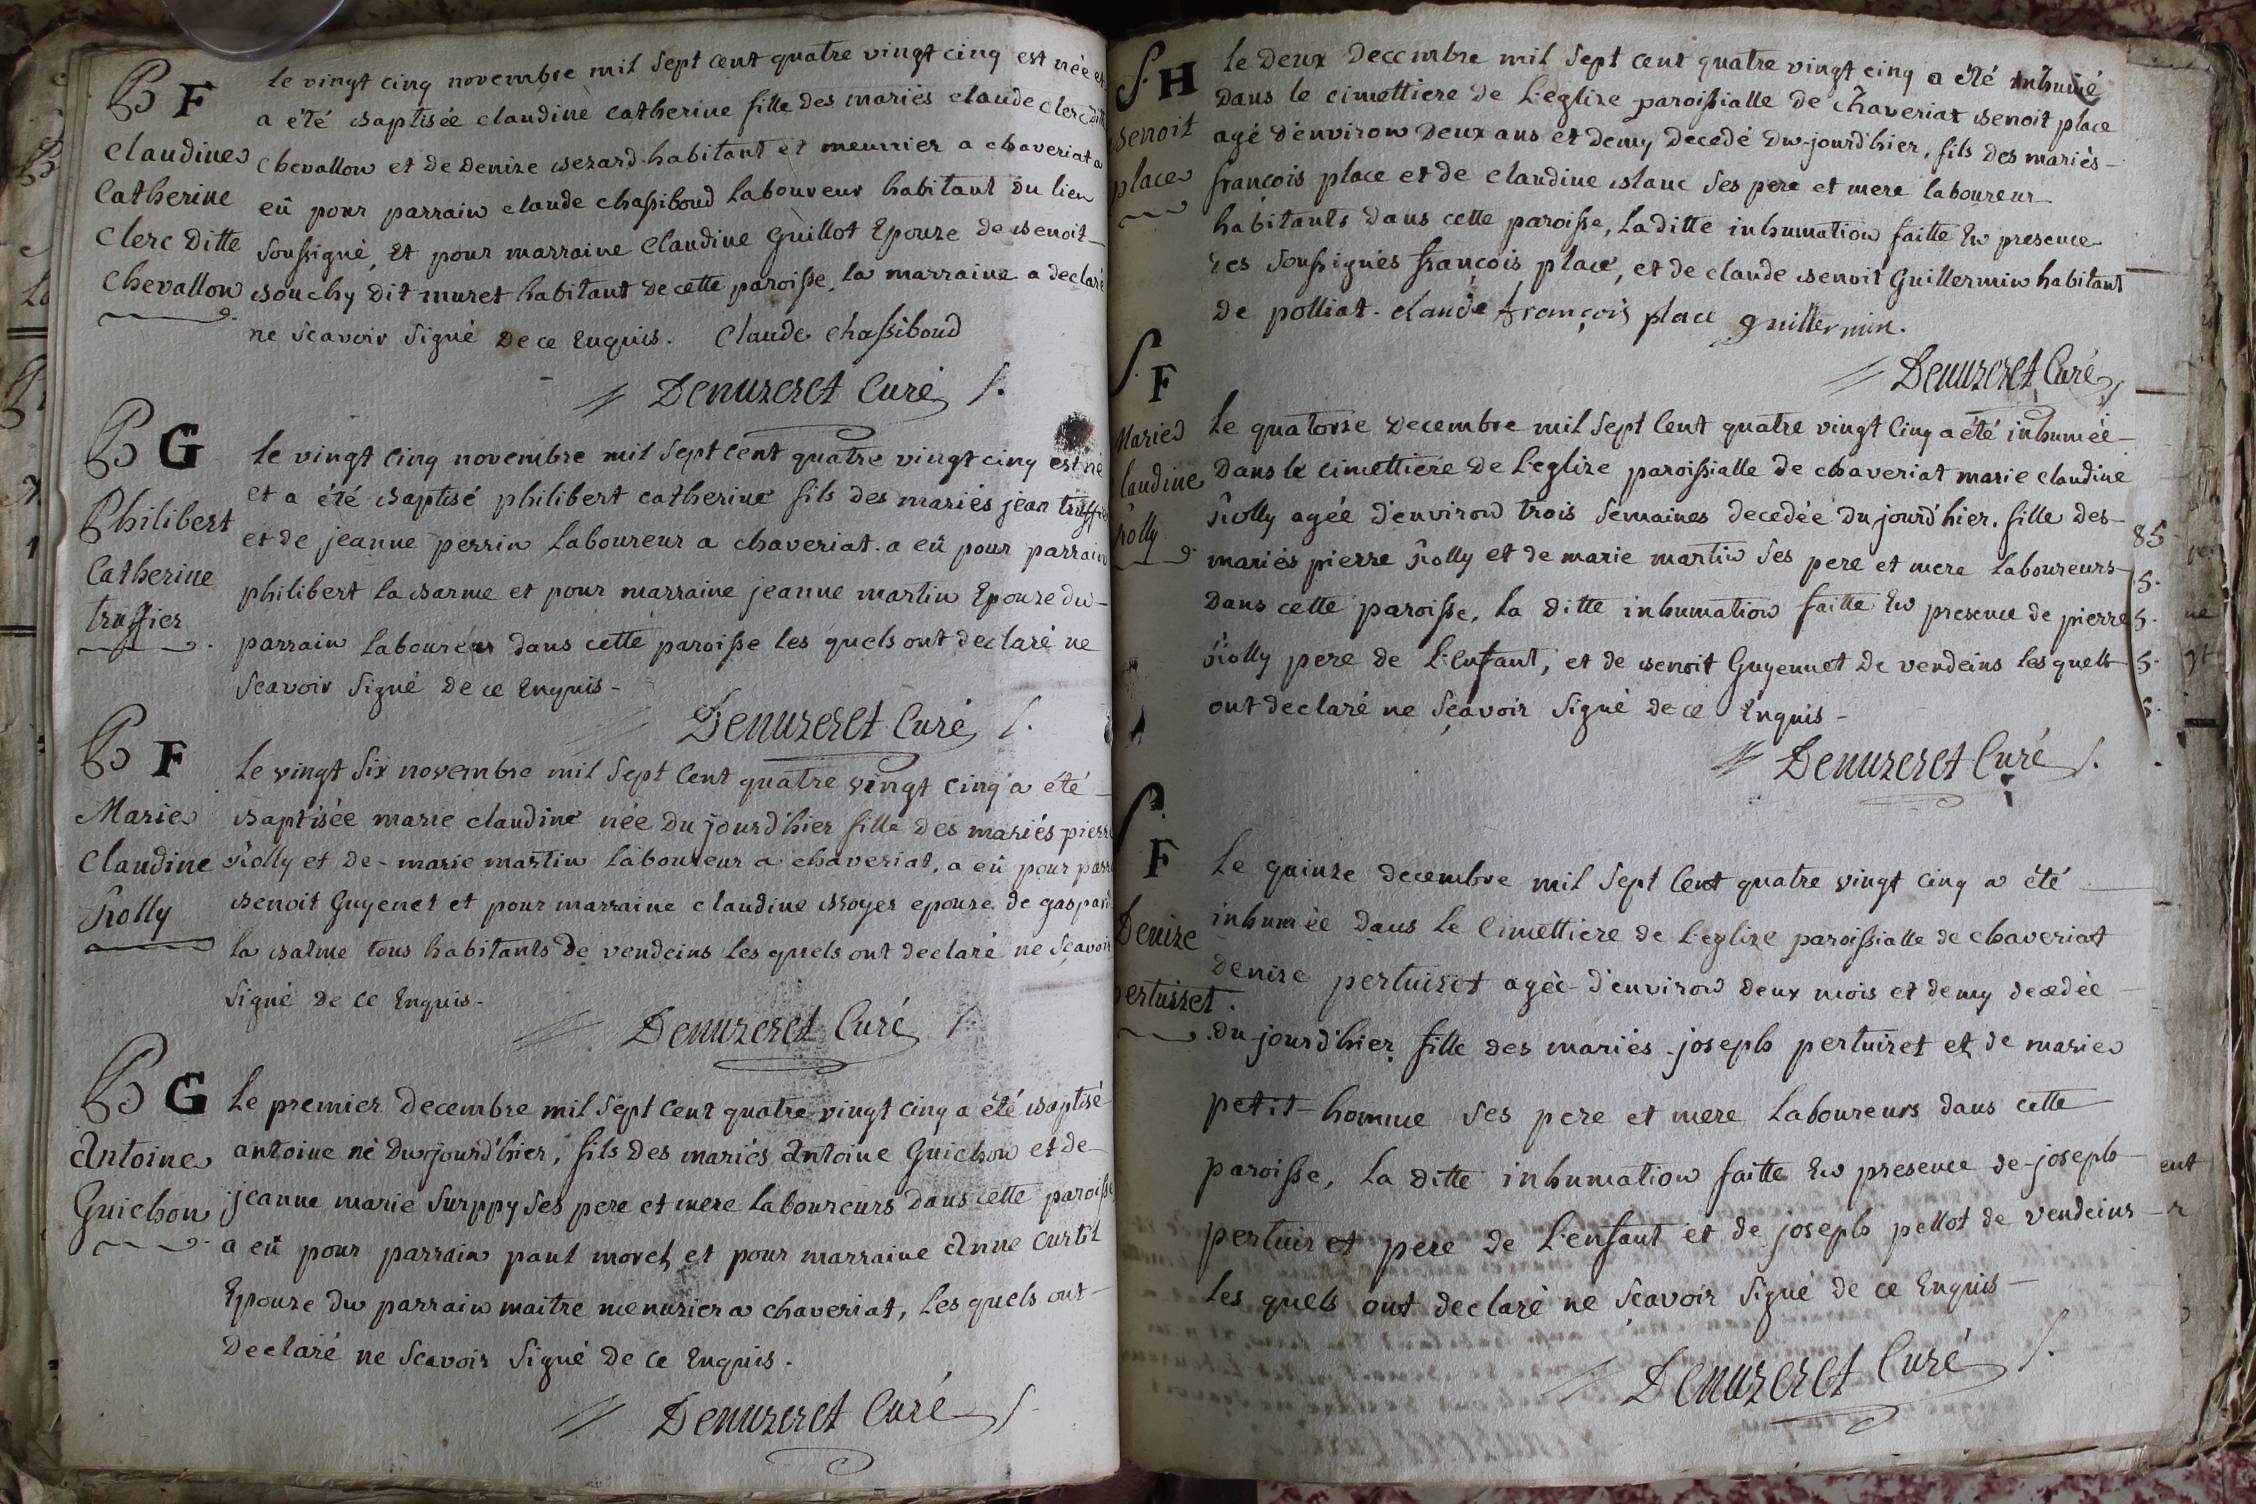 B F
Claudine
Catherine
Clerc Ditte
Chevallon
Le vingt cinq novembre mil sept cent quatre vingt cinq est née et
a été baptisée claudine catherine fille des mariés claude clerc dit
chevallon et de denise bezard habitant et meunier a chaveriat a
eû pour parrain claude chassiboud laboureur habitant du lieu
soussigné, et pour marraine claudine guillot Epouze de benoit
bouchy dit muret habitant de cette paroisse, la marraine a declaré
ne scavoir signé de ce Enquis. Claude chassiboud
Denuzeret Curé
B G
Philibert
Catherine
truffier
Le vingt cinq novembre mil sept cent quatre vingt cinq est né
et a été baptisé philibert catherine fils des mariés jean truffier
et de jeanne perrin Laboureur a chaveriat. a eû pour parrain
philibert la barme et pour marraine jeanne martin Epouze du
parrain laboureur dans cette paroisse les quels ont declaré ne
scavoir signé de ce Enquis
Denuzeret Curé
B F
Marie
Claudine
Rolly
Le vingt six novembre mil sept cent quatre vingt cinq a été
baptisée marie claudine née du jourd'hier fille des mariés pierre
Rolly et de marie martin laboureur a chaveriat, a eû pour
benoit Guyenet et pour marraine claudine broyer epouze de gaspard
la balme tous habitants de vendeins les quels ont declaré ne sçavoir
signé de ce Enquis
Denuzeret Curé
B G
Antoine
Guichon
Le premier decembre mil sept cent quatre vingt cinq a été baptisé
antoine né du jourd'hier, fils des mariés Antoine Guichon et de
jeanne marie surppy ses pere et mere laboureurs dans cette paroisse
a eû pour parrain paul morel et pour marraine Anne curtil
Epouze du parrain maitre menuzier a chaveriat, les quels ont
declaré ne scavoir signé de ce Enquis.
Denuzeret Curé
S H
Benoit
place
le deux decembre mil sept cent quatre vingt cinq a été inhumé
dans le cimettiere de l'eglize paroissialle de chaveriat benoit place
agé d'environ deux ans et demy decedé du jourd'hier, fils des mariés
françois place et de claudine blanc ses pere et mere laboureur
habitants dans cette paroisse, la ditte inhumation faitte En presence
des soussignés françois place, et de claude benoit Guillermin habitant
de polliat. claude françois place guillermin.
Denuzeret Curé
S F
Marie
laudine
Rolly
Le quatorze decembre mil sept cent quatre vingt cinq a été inhumée
dans le cimettiere de l'eglize paroissialle de chaveriat marie claudine
Rolly agée d'environ trois semaines decedée du jourd'hier. fille des
mariés pierre Rolly et de marie martin ses pere et mere laboureurs
dans cette paroisse. la ditte inhumation faitte En presence de pierre
Rolly pere de l'enfant, et de benoit Guyennet de vendeins les quels
ont declaré ne sçavoir signé de ce Enquis
Denuzeret Curé
S F
Denize
pertuizet
Le quinze decembre mil sept cent quatre vingt cinq a été
inhumée dans le cimettiere de l'eglize paroissialle de chaveriat
denize pertuizet agée d'environ deux mois et demy decedée
du jourd'hier fille des mariés joseph pertuizet et de marie
petit-homme ses pere et mere laboureurs dans cette
paroisse, la ditte inhumation faitte En presence de joseph
pertuizet pere de l'enfant et de joseph pellot de vendeins
les quels ont declaré ne sçavoir signé de ce Enquis
Denuzeret Curé
85
5.
5.
5.
ent